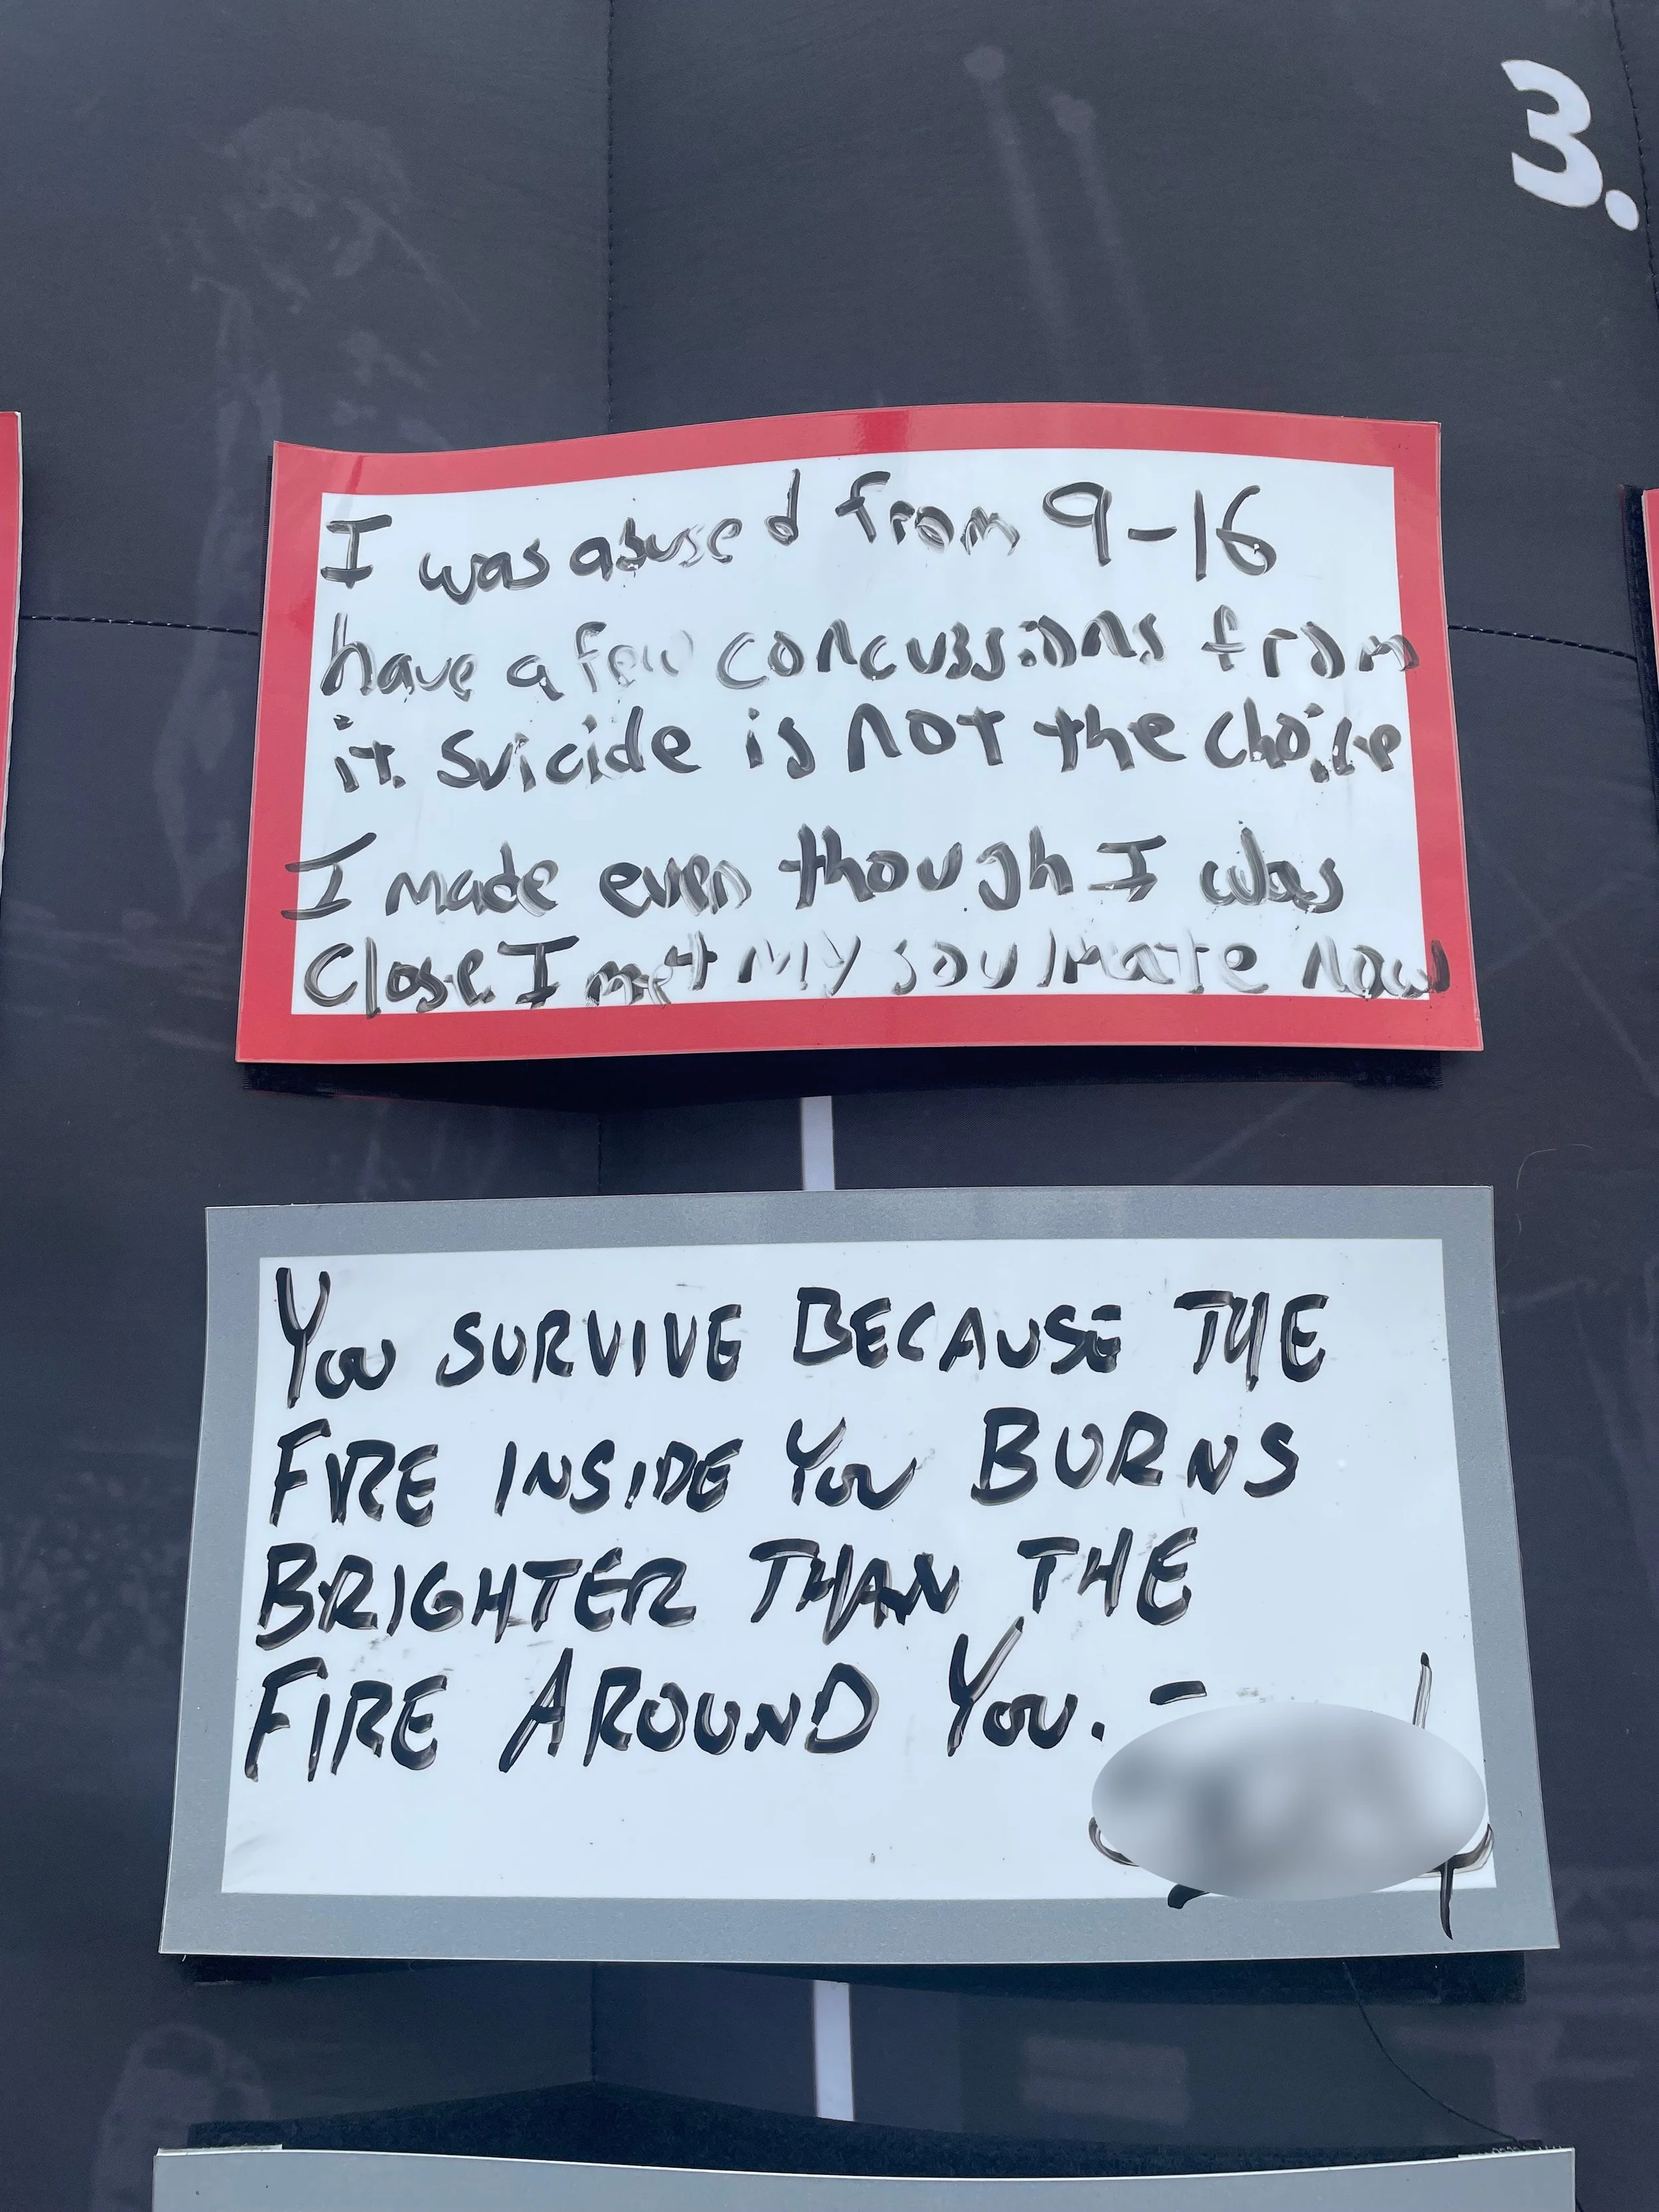 3.
I was abused from 9-16
have a few concussions from
it. Suicide is not the choice
I made even though I was
close. I met my soulmate now
You SURVIVE BECAUSE THE
FIRE INSIDE You BURNS
BRIGHTER THAN THE
FIRE AROUND You. -